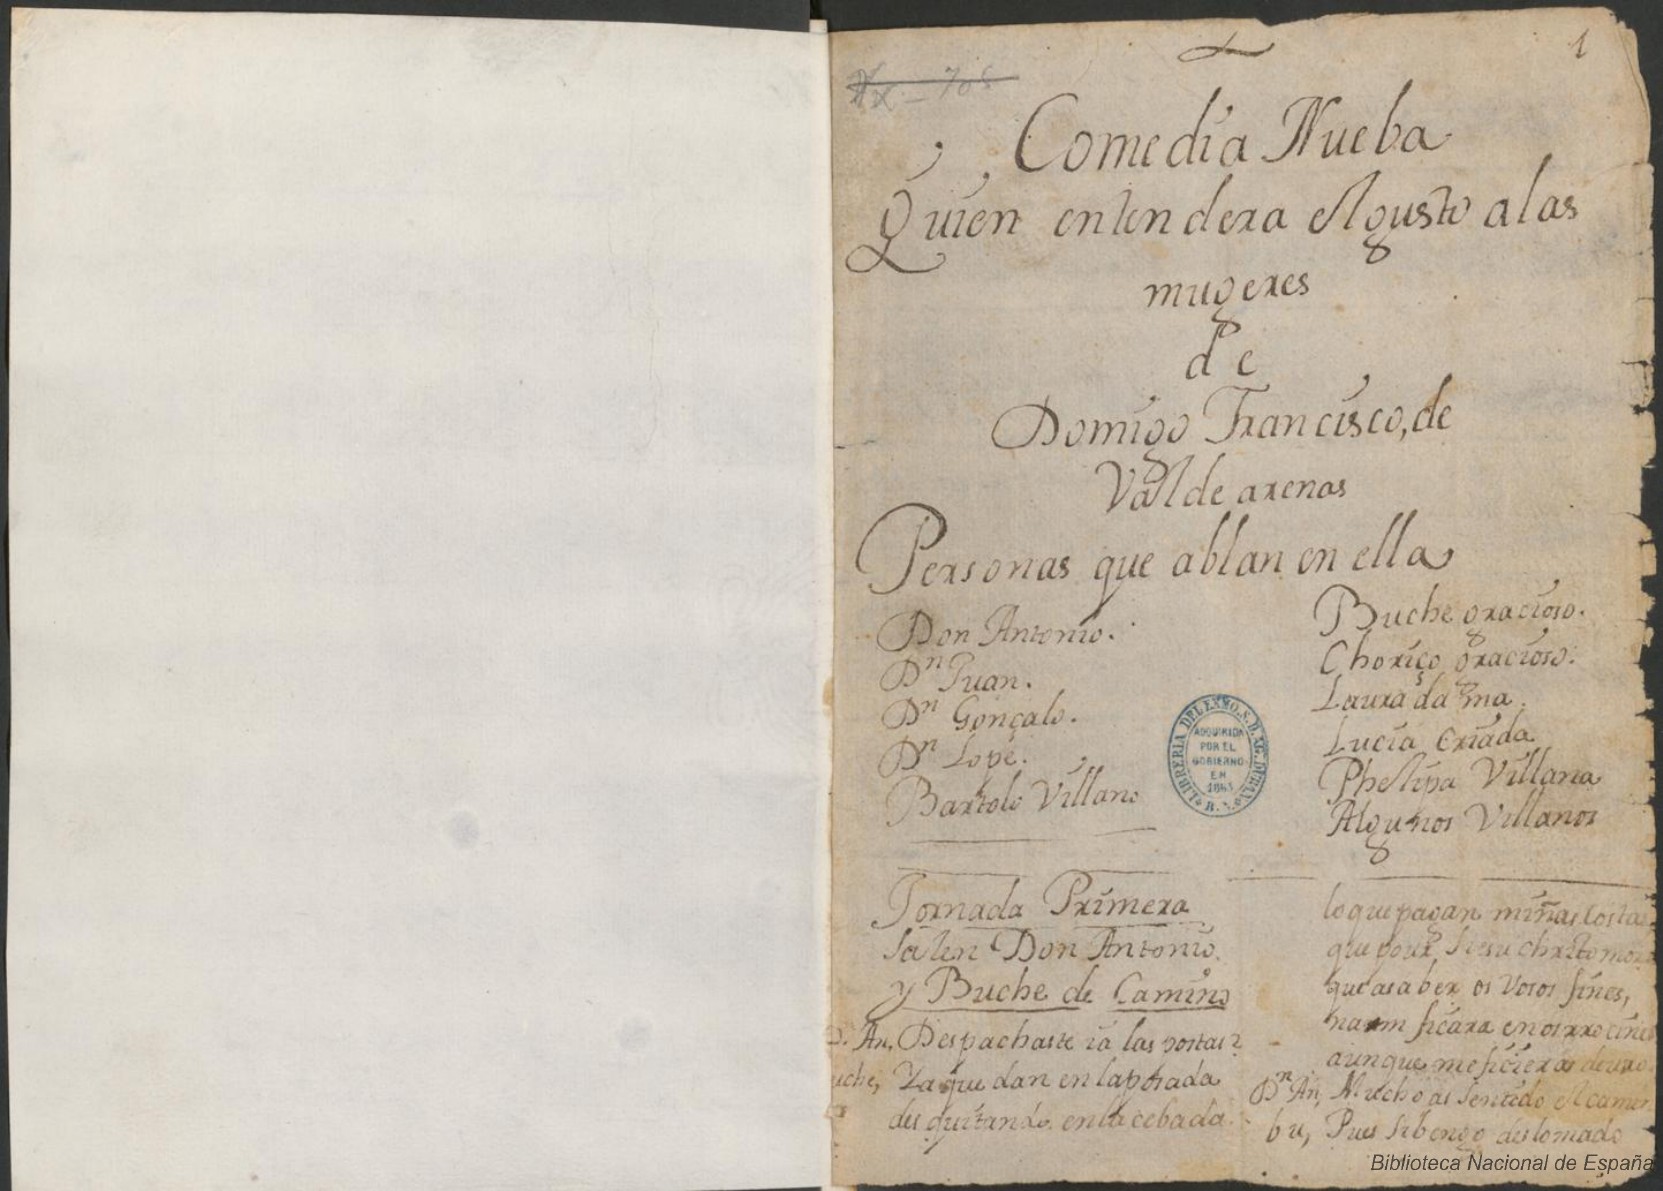 1
Comedia Nueba
Quien entendera el gusto a las
mugeres
de
Domigo Francisco, de
Valde arenas
Personas que ablan en ella
Don Antonio.
Dn Juan.
Dn Gonçalo.
Dn Lope.
Bartolo Villano
Buche gracioso.
Choriço gracioso.
Laura dama.
Lucia Criada
Phelipa Villana
Algunos Villanos
LIBRERIA DEL EXMO. S. D. AG. DURAN
ADQUIRIDA
POR EL
GOBIERNO
EN
1863
B. N.
Jornada Primera
Salen Don Antonio.
y Buche de Camino
D. An, Despachaste ia las postas?
uche, Ya quedan en la posada
desquitando en la cebada
lo que pagan miñas costas
que pour Jesu christo
que asaber os vosos fines,
naon ficara en os rrocines
aunque me ficieras
Dn An, Mucho as sentido el camin
bu, Pues si bengo deslomado
Biblioteca Nacional de España